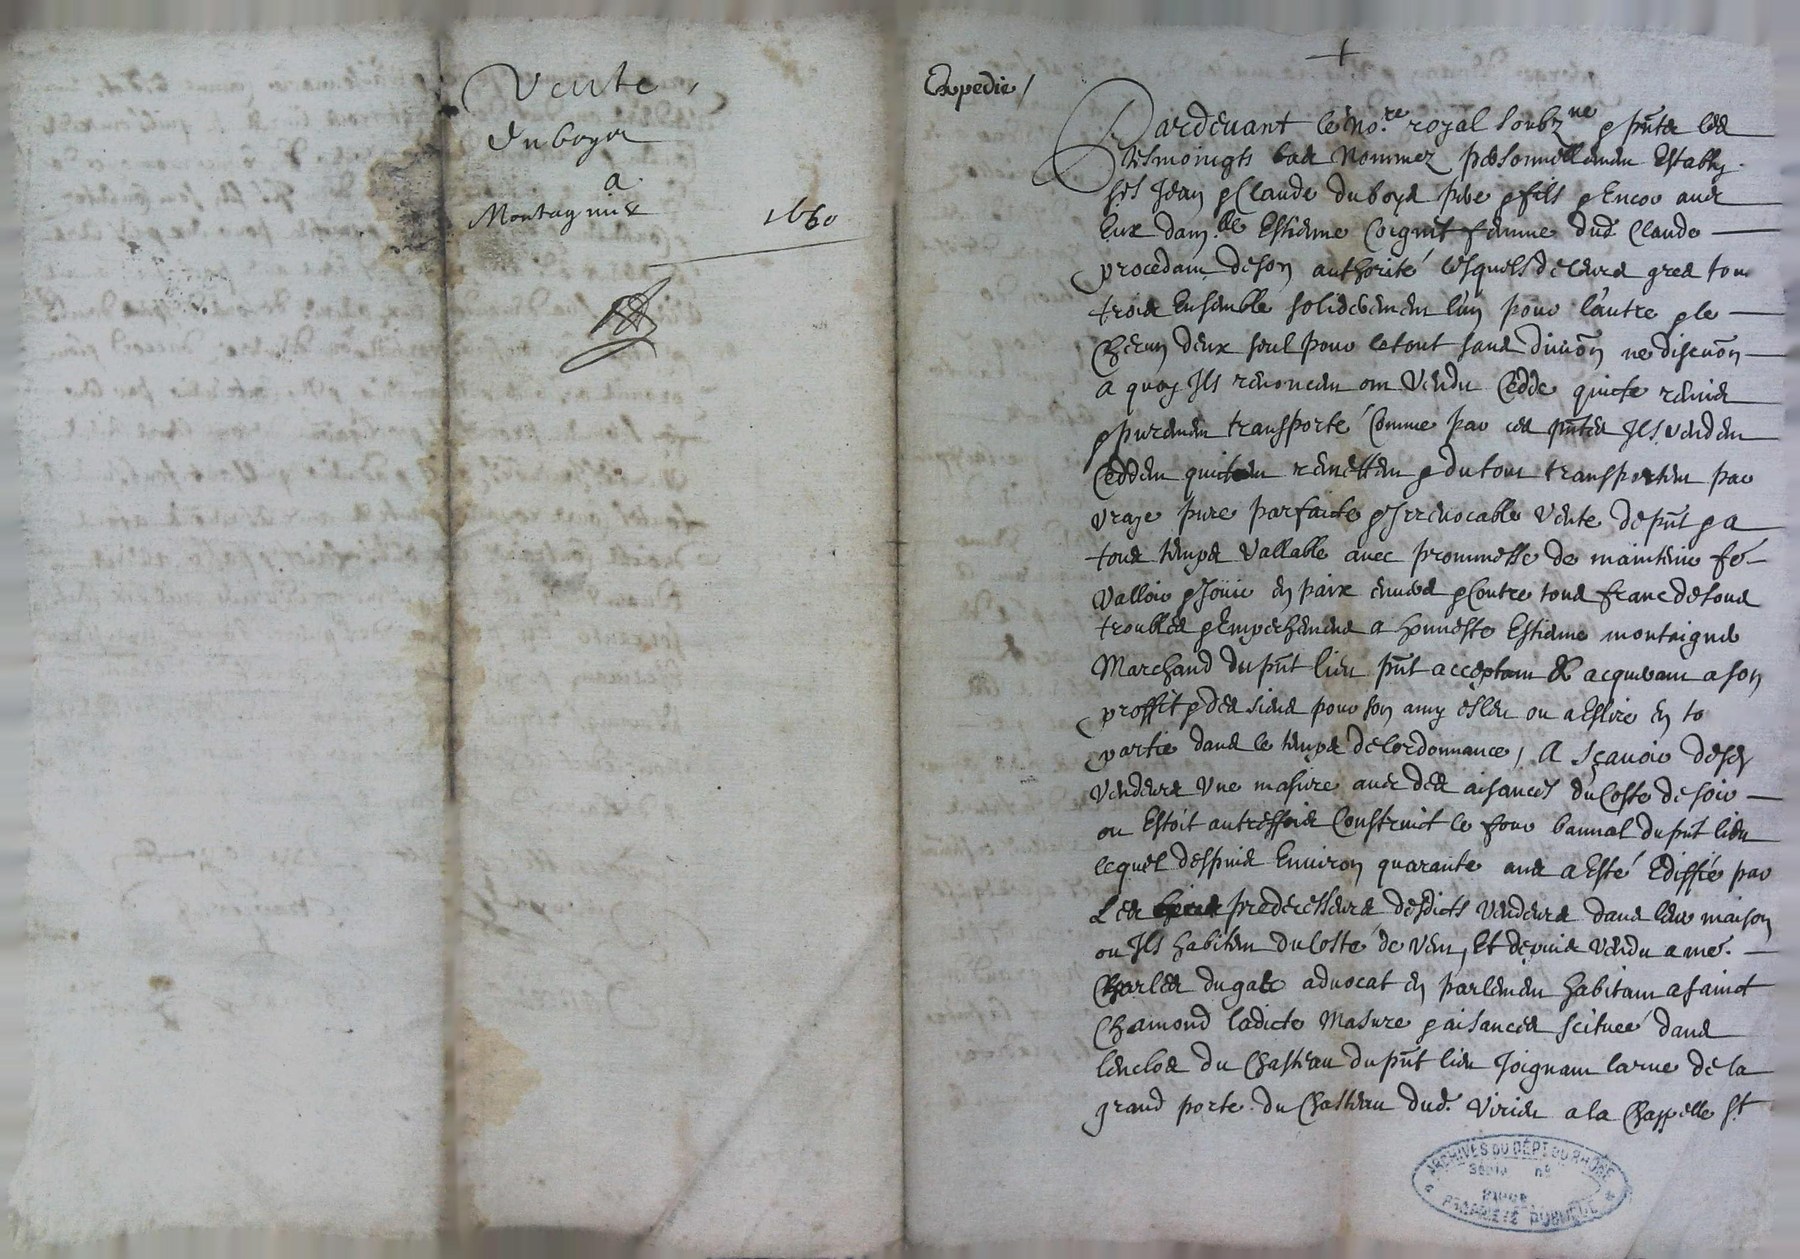 Vente
Duboys
a
Montagnier
1660
Expedié /
Pardevant le No.re royal soubz.ne & pnts les
tesmoingts bas nommez personnellement establys
srs Jean & Claude duboys pere & fils & encor avec
eux dam.lle Estienne Coignet femme dud. Claude
procedant de son authorité lesquels de leurs grez tous
trois ensemble solidairement l'un pour l'autre & le
chacun deux seul pour le tout sans divion ne discuon
a quoy Ils renoncent ont vendu cedde quicte remis
& purement transporté comme par ces pntes Ils vendent
ceddent quictent remettent & du tout transportent par
vraye pure parfaicte & Irrevocable vente de pnt & a
tous temps vallable avec prommesse de maintenir fe-
valloir & Jouir en paix envers & contre tous franc de tous
troubles & Empechemens a honneste Estienne montaignier
Marchand du pnt lieu pnt acceptant & acquerant a son
proffit & des siens pour son amy esleu ou a Eslire en to
partie dans le temps de lordonnance, A sçavoir desd
vendeurs une masure avec des aisances du Costé de soir
ou Estoit autreffois Construict le four bannal du pnt lieu
lequel despuis Environ quarante ans a Esté Ediffié par
Les predecesseurs desdicts vendeurs dans leur maison
ou Ils habitent du Costé de vent, Et depuis vendu a me.
Charles dugas advocat en parlement habitant a sainct
Chamond ladicte Masure & aisances scituée dans
lenclos du Chasteau du pnt lieu Joignant la rue de la
grand porte du Chasteau dud. Virieu a la Chappelle St
ARCHIVES DU DÉPT DU RHÔNE
SÉRIE no
PROPRIÉTÉ PUBLIQUE